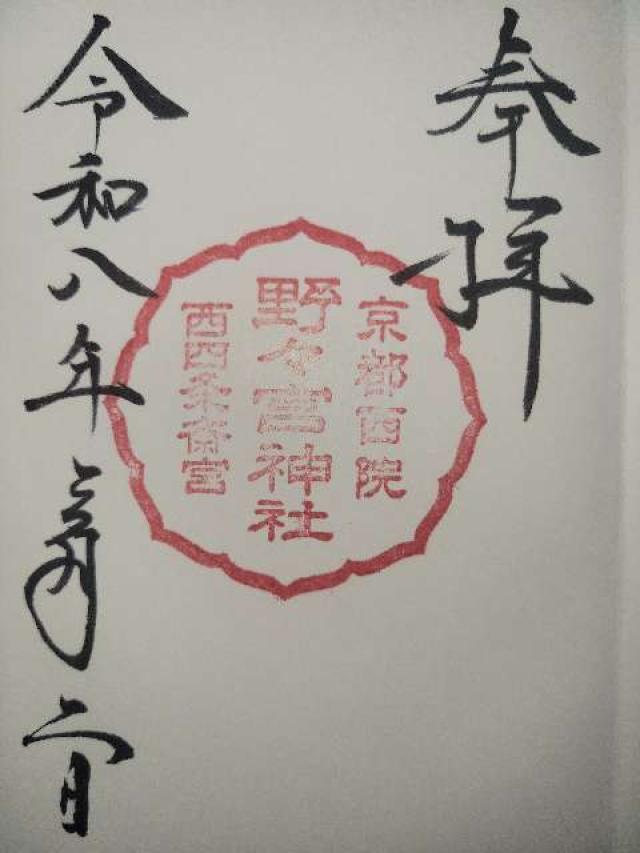 奉拝
京都西院
野々宮神社
西四条斎宮
令和八年三月二日